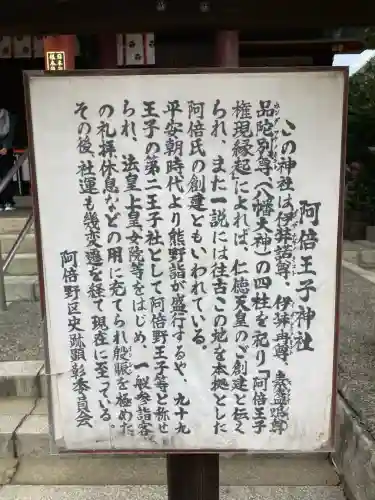 阿倍王子神社
この神社は伊弉諾尊、伊弉冉尊、素盞嗚尊
品陀別尊(八幡大神)の四柱を祀り「阿倍王子
権現縁起」によれば、仁徳天皇のご創建と伝え
られ、また一説には往古この地を本拠とした
阿倍氏の創建ともいわれている。
平安朝時代より熊野詣が盛行するや、九十九
王子の第二王子社として阿倍野王子等と称せ
られ、法皇上皇女院等をはじめ、一般参詣客
の礼拝休息などの用に充てられ殷賑を極めた
その後、社運も幾変遷を経て現在に至っている。
阿倍野区史跡顕彰委員会